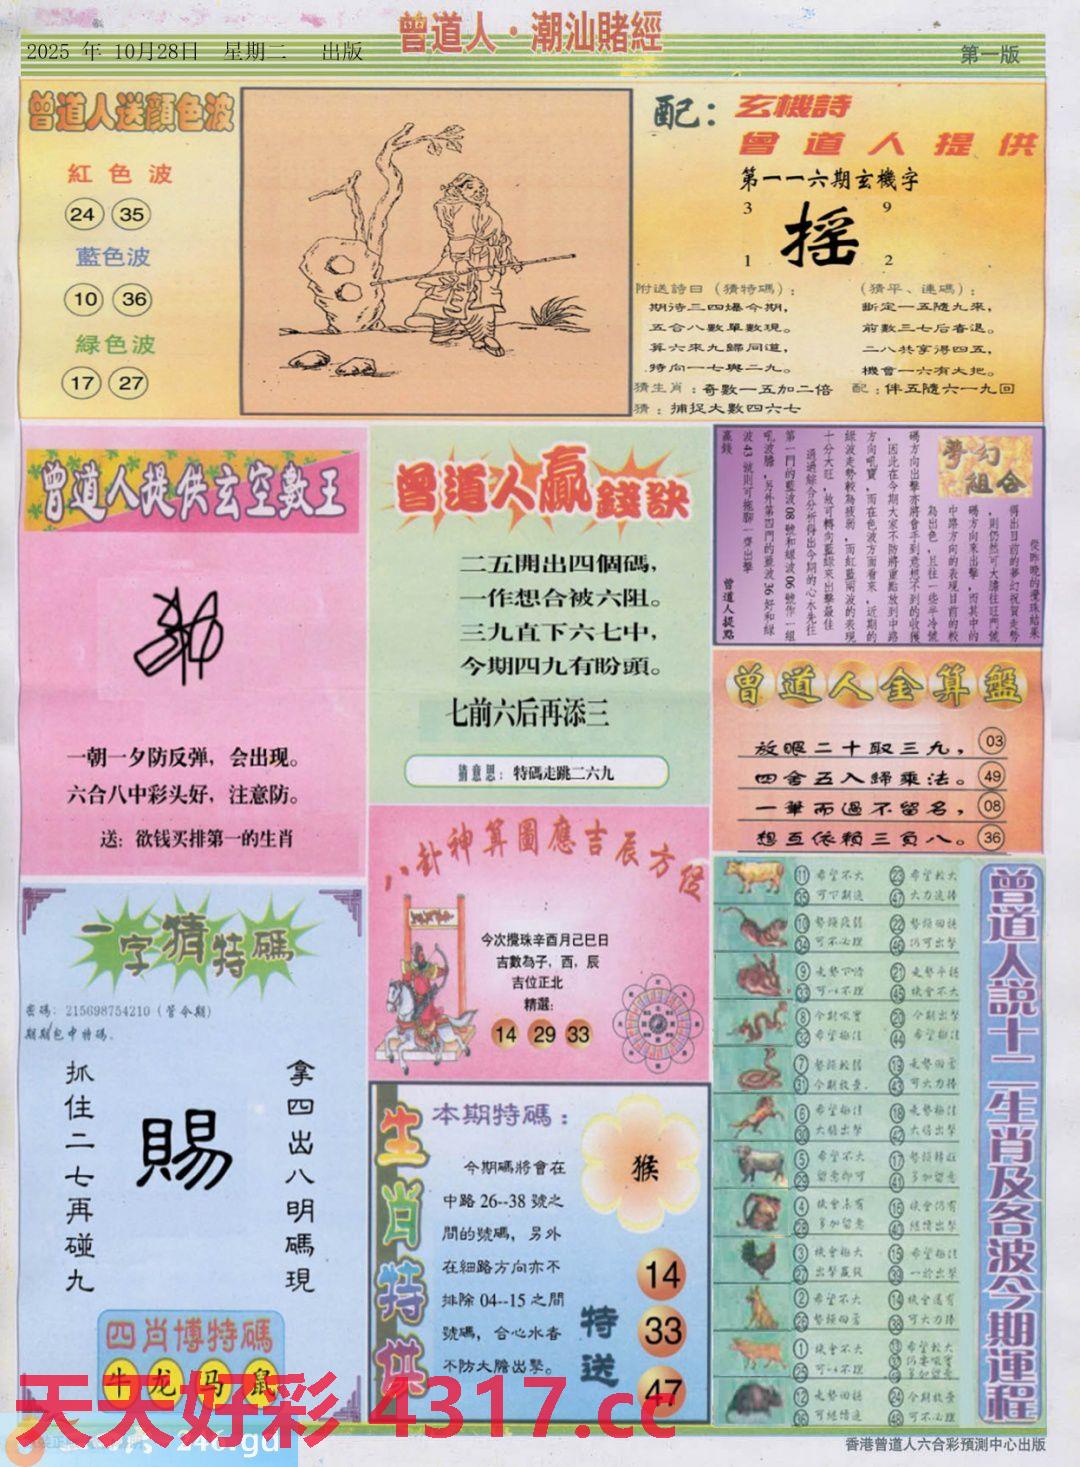 2025 年 10月28日 星期二 出版
曾道人·潮汕賭經
第一版
曾道人送顔色波
紅色波
24 35
藍色波
10 36
緑色波
17 27
配：玄機詩
曾道人提供
第一一六期玄機字
3 9
摇
1 2
附送詩日（猜特碼）：
期待三四爆今期，
五合八數單數現。
算六來九歸同道，
特向一七與二九。
猜生肖：奇數一五加二倍
猜：捕捉大數四六七
（猜平、連碼）：
斷定一五隨九來，
前數三七后春退。
二八共享得四五，
機會一六有大把。
配：伴五隨六一九回
曾道人提供玄空數王
一朝一夕防反弹，会出现。
六合八中彩头好，注意防。
送：欲钱买排第一的生肖
曾道人贏錢訣
二五開出四個碼，
一作想合被六阻。
三九直下六七中，
今期四九有盼頭。
七前六后再添三
猜意思：特碼走跳二六九
夢幻組合
從昨晚的攪珠結果
得出目前的夢幻祝賀走勢
，則仍然可大膽往旺門號
碼方向來出擊，而其中的
中路方向的表現目前的較
為出色，且往一些半冷號
碼方向出擊亦將會手到意想不到的收獲
，因此在今期大家不防將重點放到中路
方向吼寶，而在色波方面看來，近期的
綠波走勢較為疲弱，而紅藍兩波的表現
十分大旺，故可轉向藍綠來出擊最佳
通過綜合分析得出今期的心水先往
第一門的藍波08號和綠波06號作一組
吼波膽，另外第四門的藍波36好和綠
波43號則可拖腳一齊出擊
贏錢
曾道人提點
曾道人金算盤
放眼二十取三九， 03
四舍五入歸乘法。 49
一筆而過不留名， 08
想互依賴三負八。 36
八卦神算圖應吉辰方位
今次攪珠辛酉月己巳日
吉數為子，酉，辰
吉位正北
精選：
14 29 33
一字猜特碼
密碼：215698754210（管今期）
期期包中特碼。
抓住二七再碰九
賜
拿四出八明碼現
四肖博特碼
牛 龙 马 鼠
生肖特供
本期特碼：
今期碼將會在
中路26--38號之
間的號碼，另外
在細路方向亦不
排除04--15之間
號碼，合心水者
不防大膽出擊。
猴
特送
14
33
47
曾道人説十二生肖及各波今期運程
11 希望不大 23 希望較大
35 可下期追 47 大力追捧
10 22
34 可不必理 46 仍可出擊
9 21
33 可以不理 45 機會不大
8 今期吼實 20 今期出擊
32 44
7 19
31 43 可大力捧
6 18
30 大膽出擊 42 大膽出擊
5 希望不大 17
29 留意即可 41 多加留意
4 機會未有 16 機會仍有
28 多加留意 40 繼續出擊
3 機會極大 15
27 39 一於出擊
2 希望不大 14 機會還有
26 38 可大力捧
1 機會不大 13 希望較大
25 可以不理
12 24
36 可繼續追 48 可不必理
天天好彩 4317.cc
246.gd
香港曾道人六合彩預測中心出版